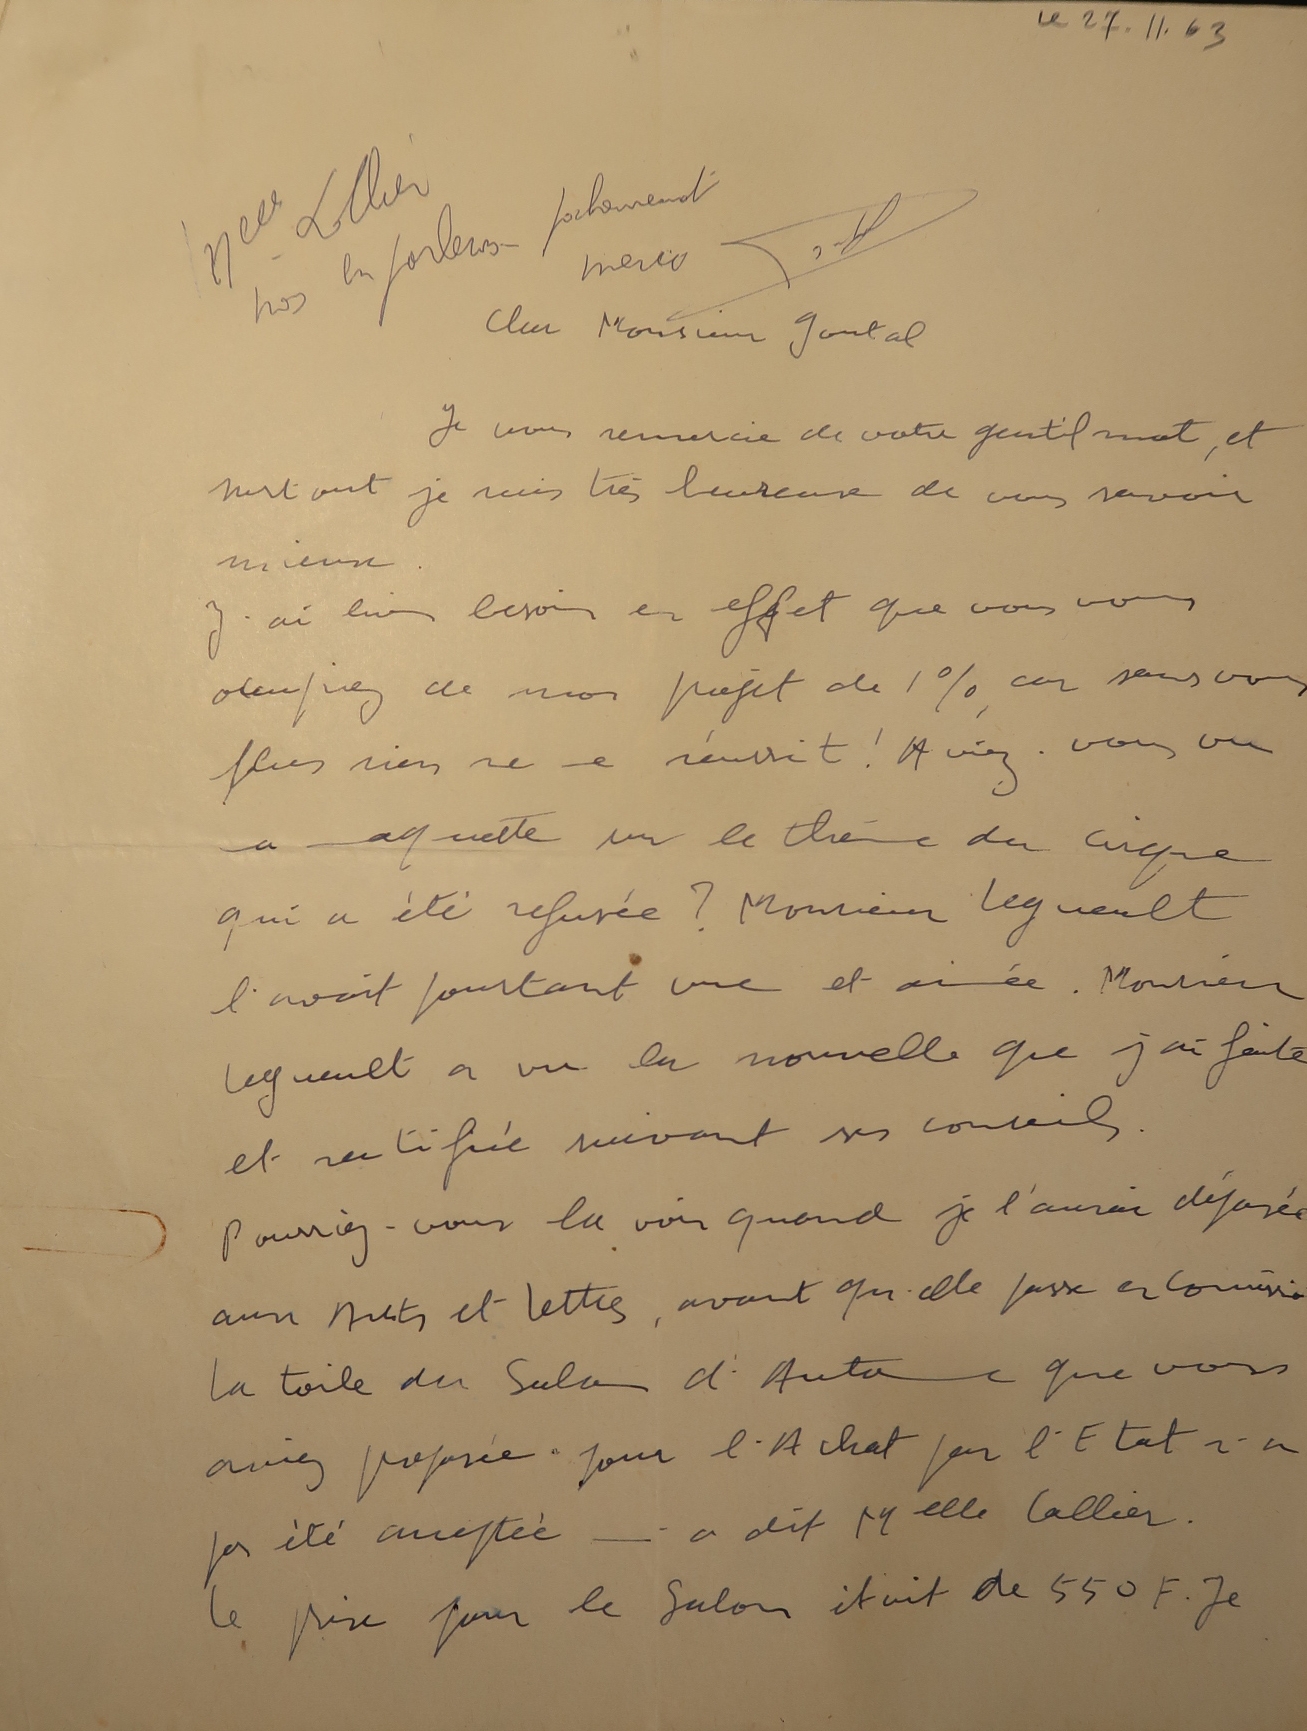 le 27.11.63
Melle Lallier
nous en parlerons prochainement
merci
Cher Monsieur Goutal
Je vous remercie de votre gentil mot, et
surtout je suis très heureuse de vous savoir
mieux.
J'ai bien besoin en effet que vous vous
occupiez de mon projet de 1%, car sans vous
plus rien ne me réussit! Aviez-vous vu
ma maquette sur le thème du cirque
qui a été refusée? Monsieur Legueult
l'avait pourtant vue et aimée. Monsieur
Legueult a vu la nouvelle que j'ai faite
et rectifiée suivant ses conseils.
Pourriez-vous la voir quand je l'aurai déposée
aux Arts et Lettres, avant qu'elle passe en Commission
La toile du Salon d'Automne que vous
aviez proposée pour l'Achat par l'Etat n'a
pas été acceptée m'a dit Melle Lallier.
Le prix pour le Salon était de 550 F. Je